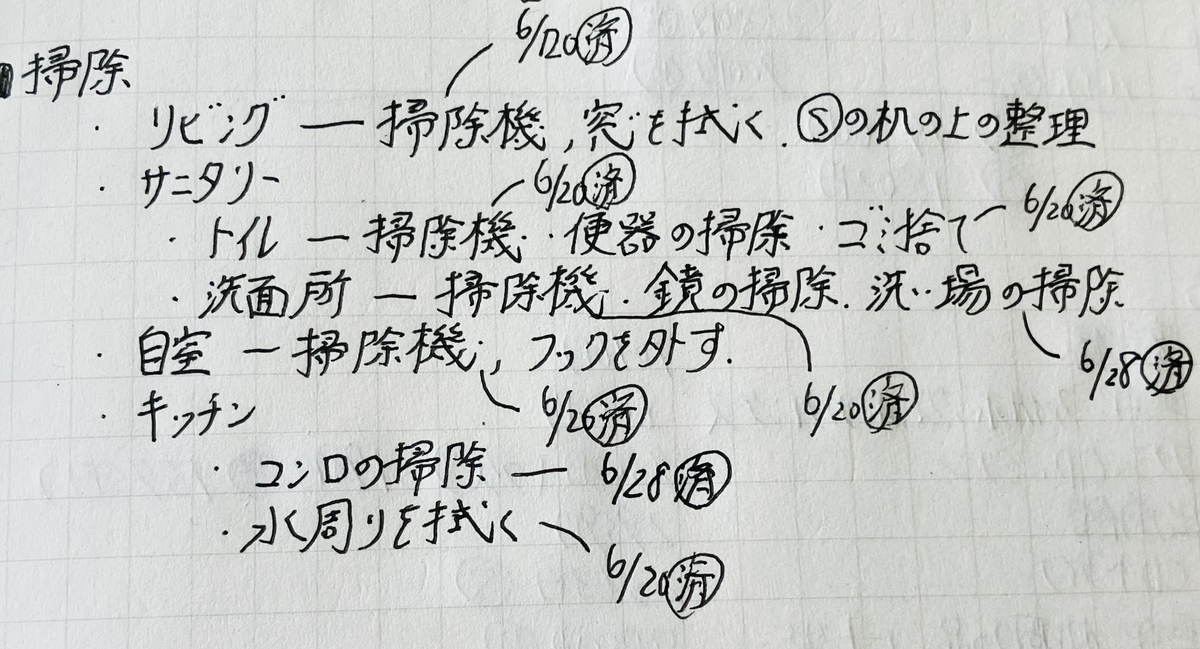 6/20㊞済
掃除
・リビング ― 掃除機, 窓を拭く. Ⓢの机の上の整理
・サニタリー 6/20済
・トイレ ― 掃除機・便器の掃除・ゴミ捨て 6/20済
・洗面所 ― 掃除機. 鏡の掃除. 洗い場の掃除
・自室 ― 掃除機, フックを外す. 6/28済
・キッチン 6/26済 6/20済
・コンロの掃除 ― 6/28済
・水周りを拭く
6/20済